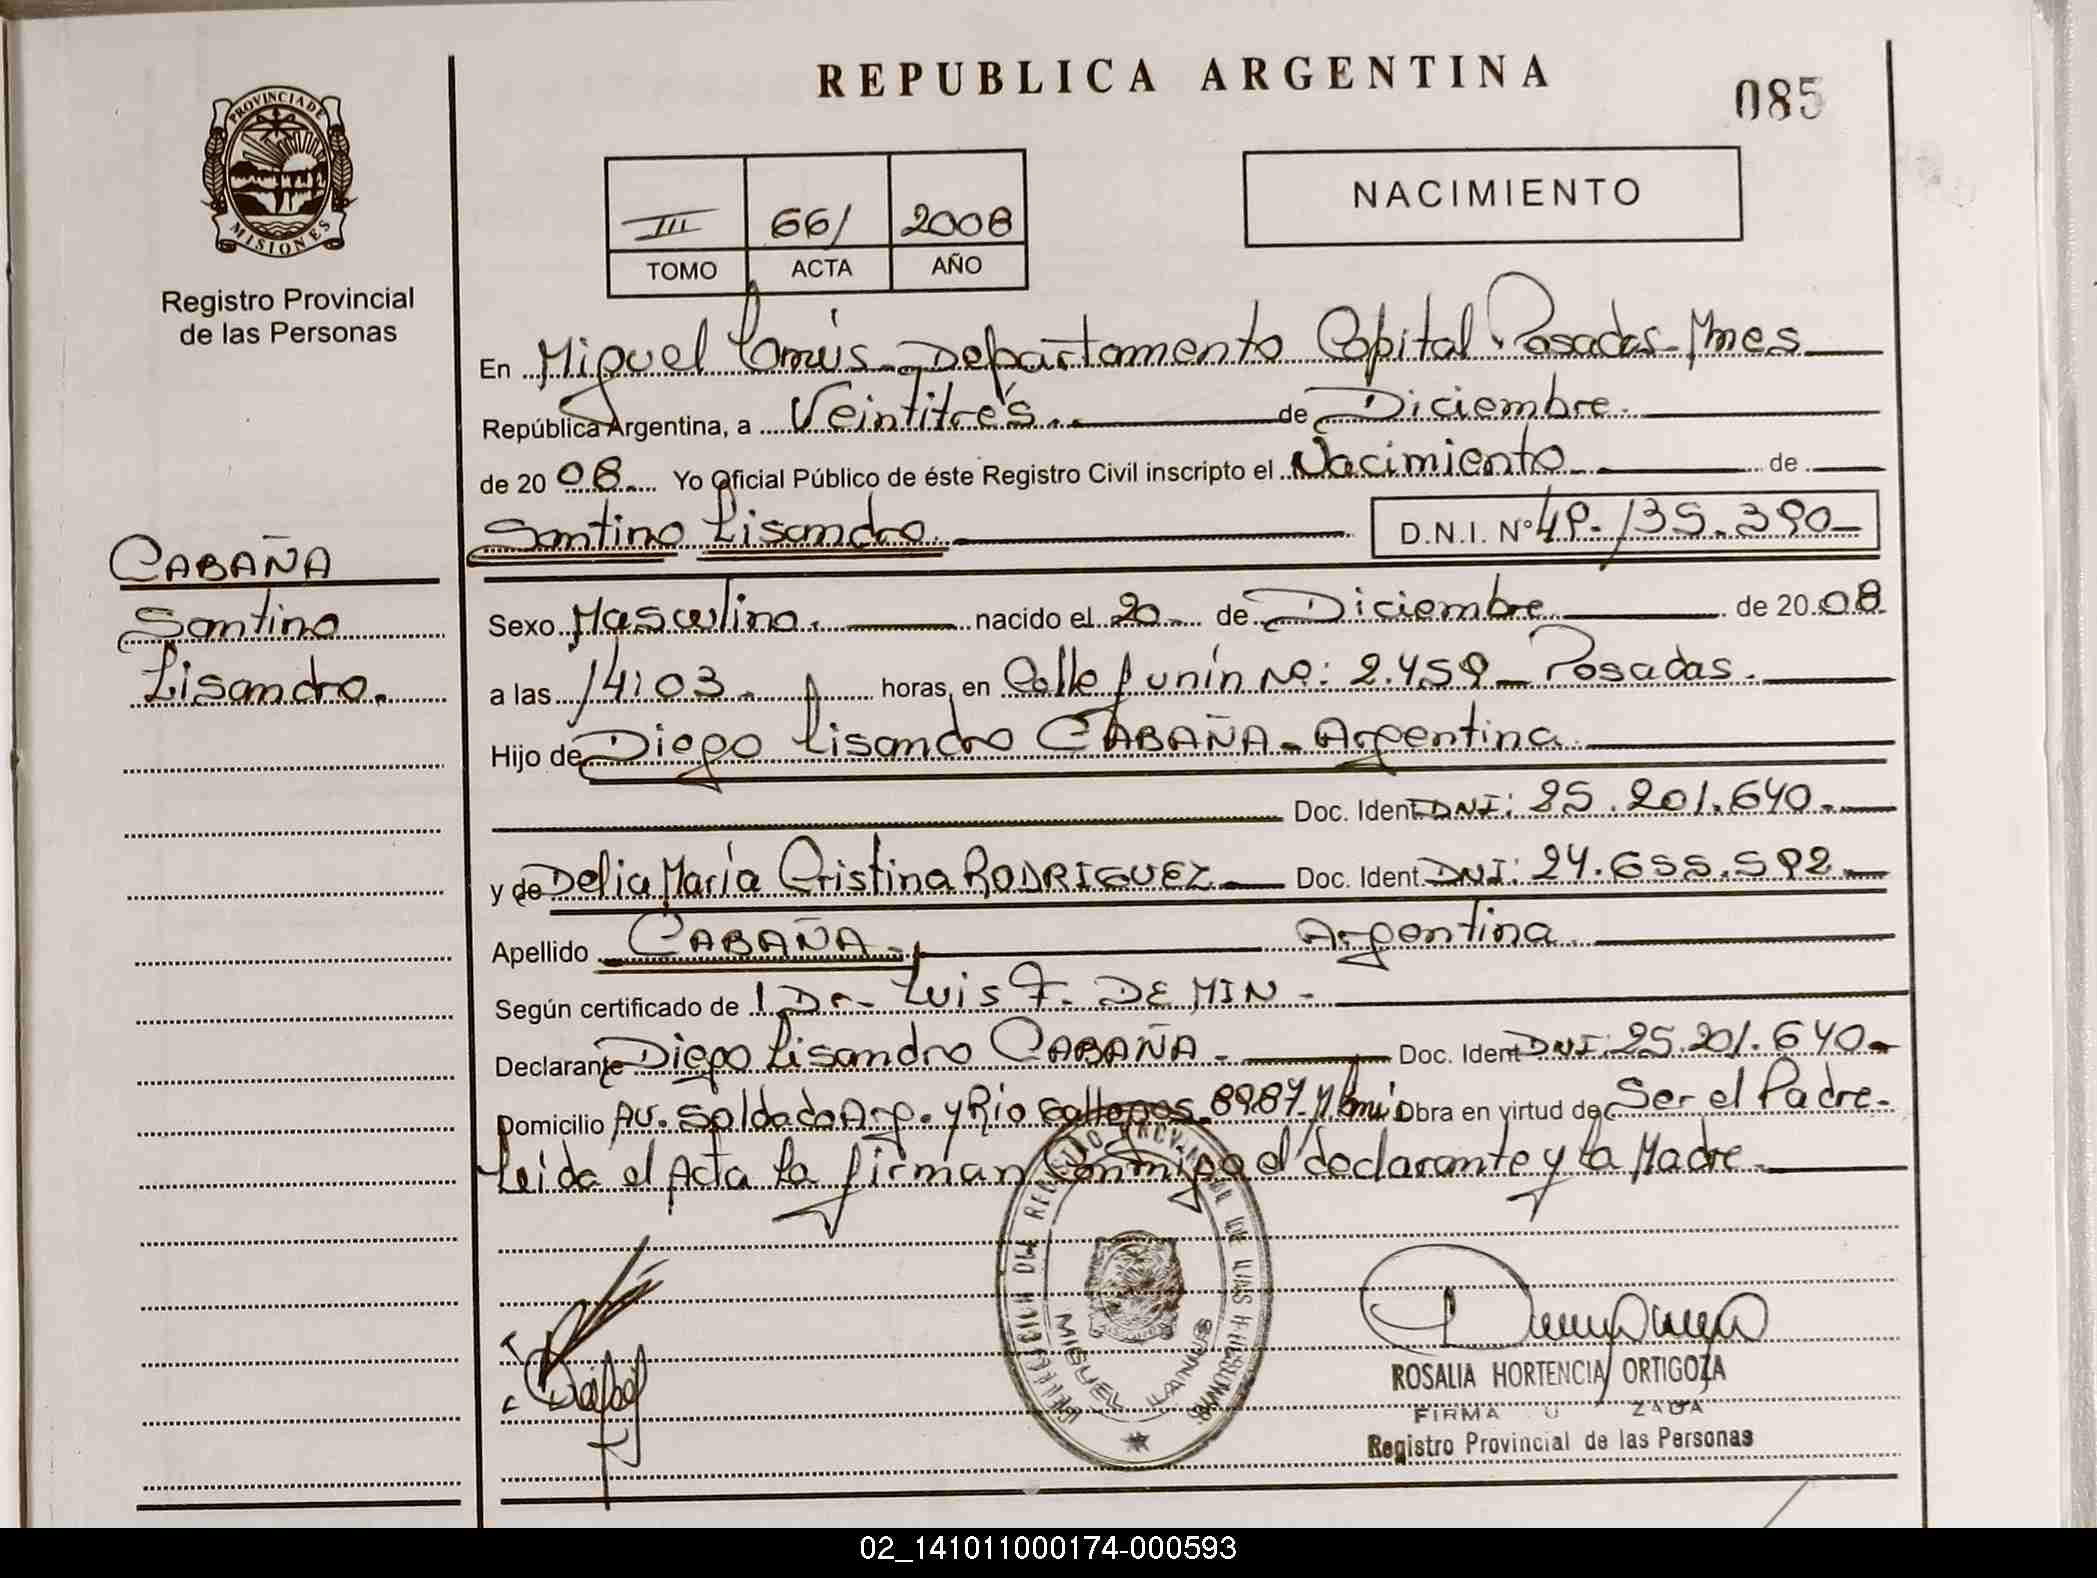 REPUBLICA ARGENTINA
085
PROVINCIA DE
MISIONES
Registro Provincial
de las Personas
NACIMIENTO
III 661 2008
TOMO ACTA AÑO
En Miguel Lanús - Departamento Capital Posadas - Mnes
República Argentina, a Veintitrés. de Diciembre.
de 20 08. Yo Oficial Público de éste Registro Civil inscripto el Nacimiento de
Santino Lisandro D.N.I. Nº 49.135.390
CABAÑA
Santino
Lisandro.
Sexo Masculino. nacido el 20 de Diciembre de 20 08
a las 14:03. horas, en Calle Junín Nº: 2.459 - Posadas.
Hijo de Diego Lisandro CABAÑA - Argentina.
Doc. Ident. DNI: 25.201.640.-
y de Delia María Cristina RODRIGUEZ Doc. Ident. DNI: 24.655.592
Apellido CABAÑA.- Argentina.
Según certificado de 1 Dr. Luis F. DE MIN -
Declarante Diego Lisandro CABAÑA - Doc. Ident DNI: 25.201.640.-
Domicilio Av. Soldado Arg. y Río Gallegos 8987 Obra en virtud de Ser el Padre.
Leida el Acta la firman Conmigo el declarante y la Madre.
MIGUEL LANUS
ROSALIA HORTENCIA ORTIGOZA
FIRMA
Registro Provincial de las Personas
02_141011000174-000593